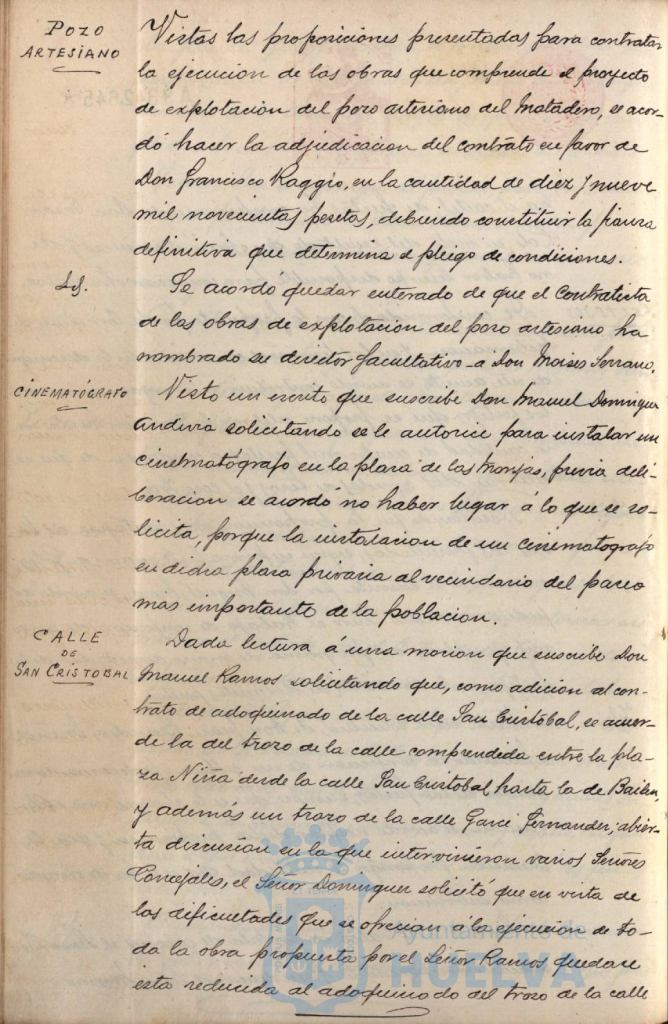 POZO
ARTESIANO
Vistas las proposiciones presentadas para contratar
la ejecucion de las obras que comprende el proyecto
de explotacion del pozo artesiano del Matadero, se acor-
dó hacer la adjudicacion del contrato en favor de
Don Francisco Raggio, en la cantidad de diez y nueve
mil novecientas pesetas, debiendo constituir la fianza
definitiva que determina el pliego de condiciones.
Id.
Se acordó quedar enterado de que el Contratista
de las obras de explotacion del pozo artesiano ha
nombrado su director facultativo a Don Moises Serrano.
CINEMATÓGRAFO
Visto un escrito que suscribe Don Manuel Dominguez
Andivia solicitando se le autorice para instalar un
cinematógrafo en la plaza de las Monjas, previa deli-
beracion se acordó no haber lugar á lo que se so-
licita, porque la instalacion de un cinematografo
en dicha plaza privaria al vecindario del paseo
más importante de la poblacion.
CALLE
DE
SAN CRISTOBAL
Dada lectura á una mocion que suscribe Don
Manuel Ramos solicitando que, como adicion al con-
trato de adoquinado de la calle San Cristóbal, se acuer-
de la del trozo de la calle comprendida entre la pla-
za Niña desde la calle San Cristobal hasta la de Bailen,
y además un trozo de la calle Garci Fernandez; abier-
ta discusion en la que intervinieron varios Señores
Concejales, el Señor Dominguez solicitó que en vista de
las dificultades que se ofrecian á la ejecucion de to-
da la obra propuesta por el Señor Ramos quedase
esta reducida al adoquinado del trozo de la calle
Ayuntamiento de
HUELVA